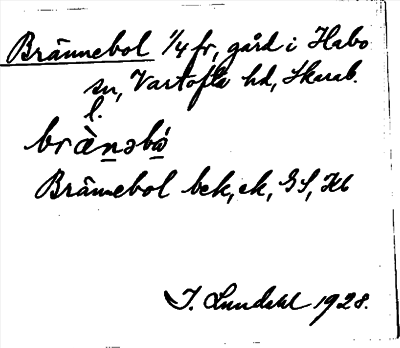 Brännebol 1/4 fr, gård i Habo
sn, Vartofta hd, Skarab.
l.
brä̀nəbó
Brännebol bek, ek, GS, Kb
I. Lundahl 1928.